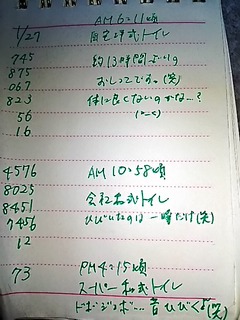 AM 6:11頃
1/27 自宅洋式トイレ
745 約13時間ぶりの
875 おしっこです。(笑)
067 体に良くないのかな…?
823
56
16
4576 AM 10:58頃
8025 会社和式トイレ
8451 ひびいたのは一瞬だけ(笑)
7456
12
73 PM 4:15頃
スーパー和式トイレ
ドボジョボ…音ひびく(笑)